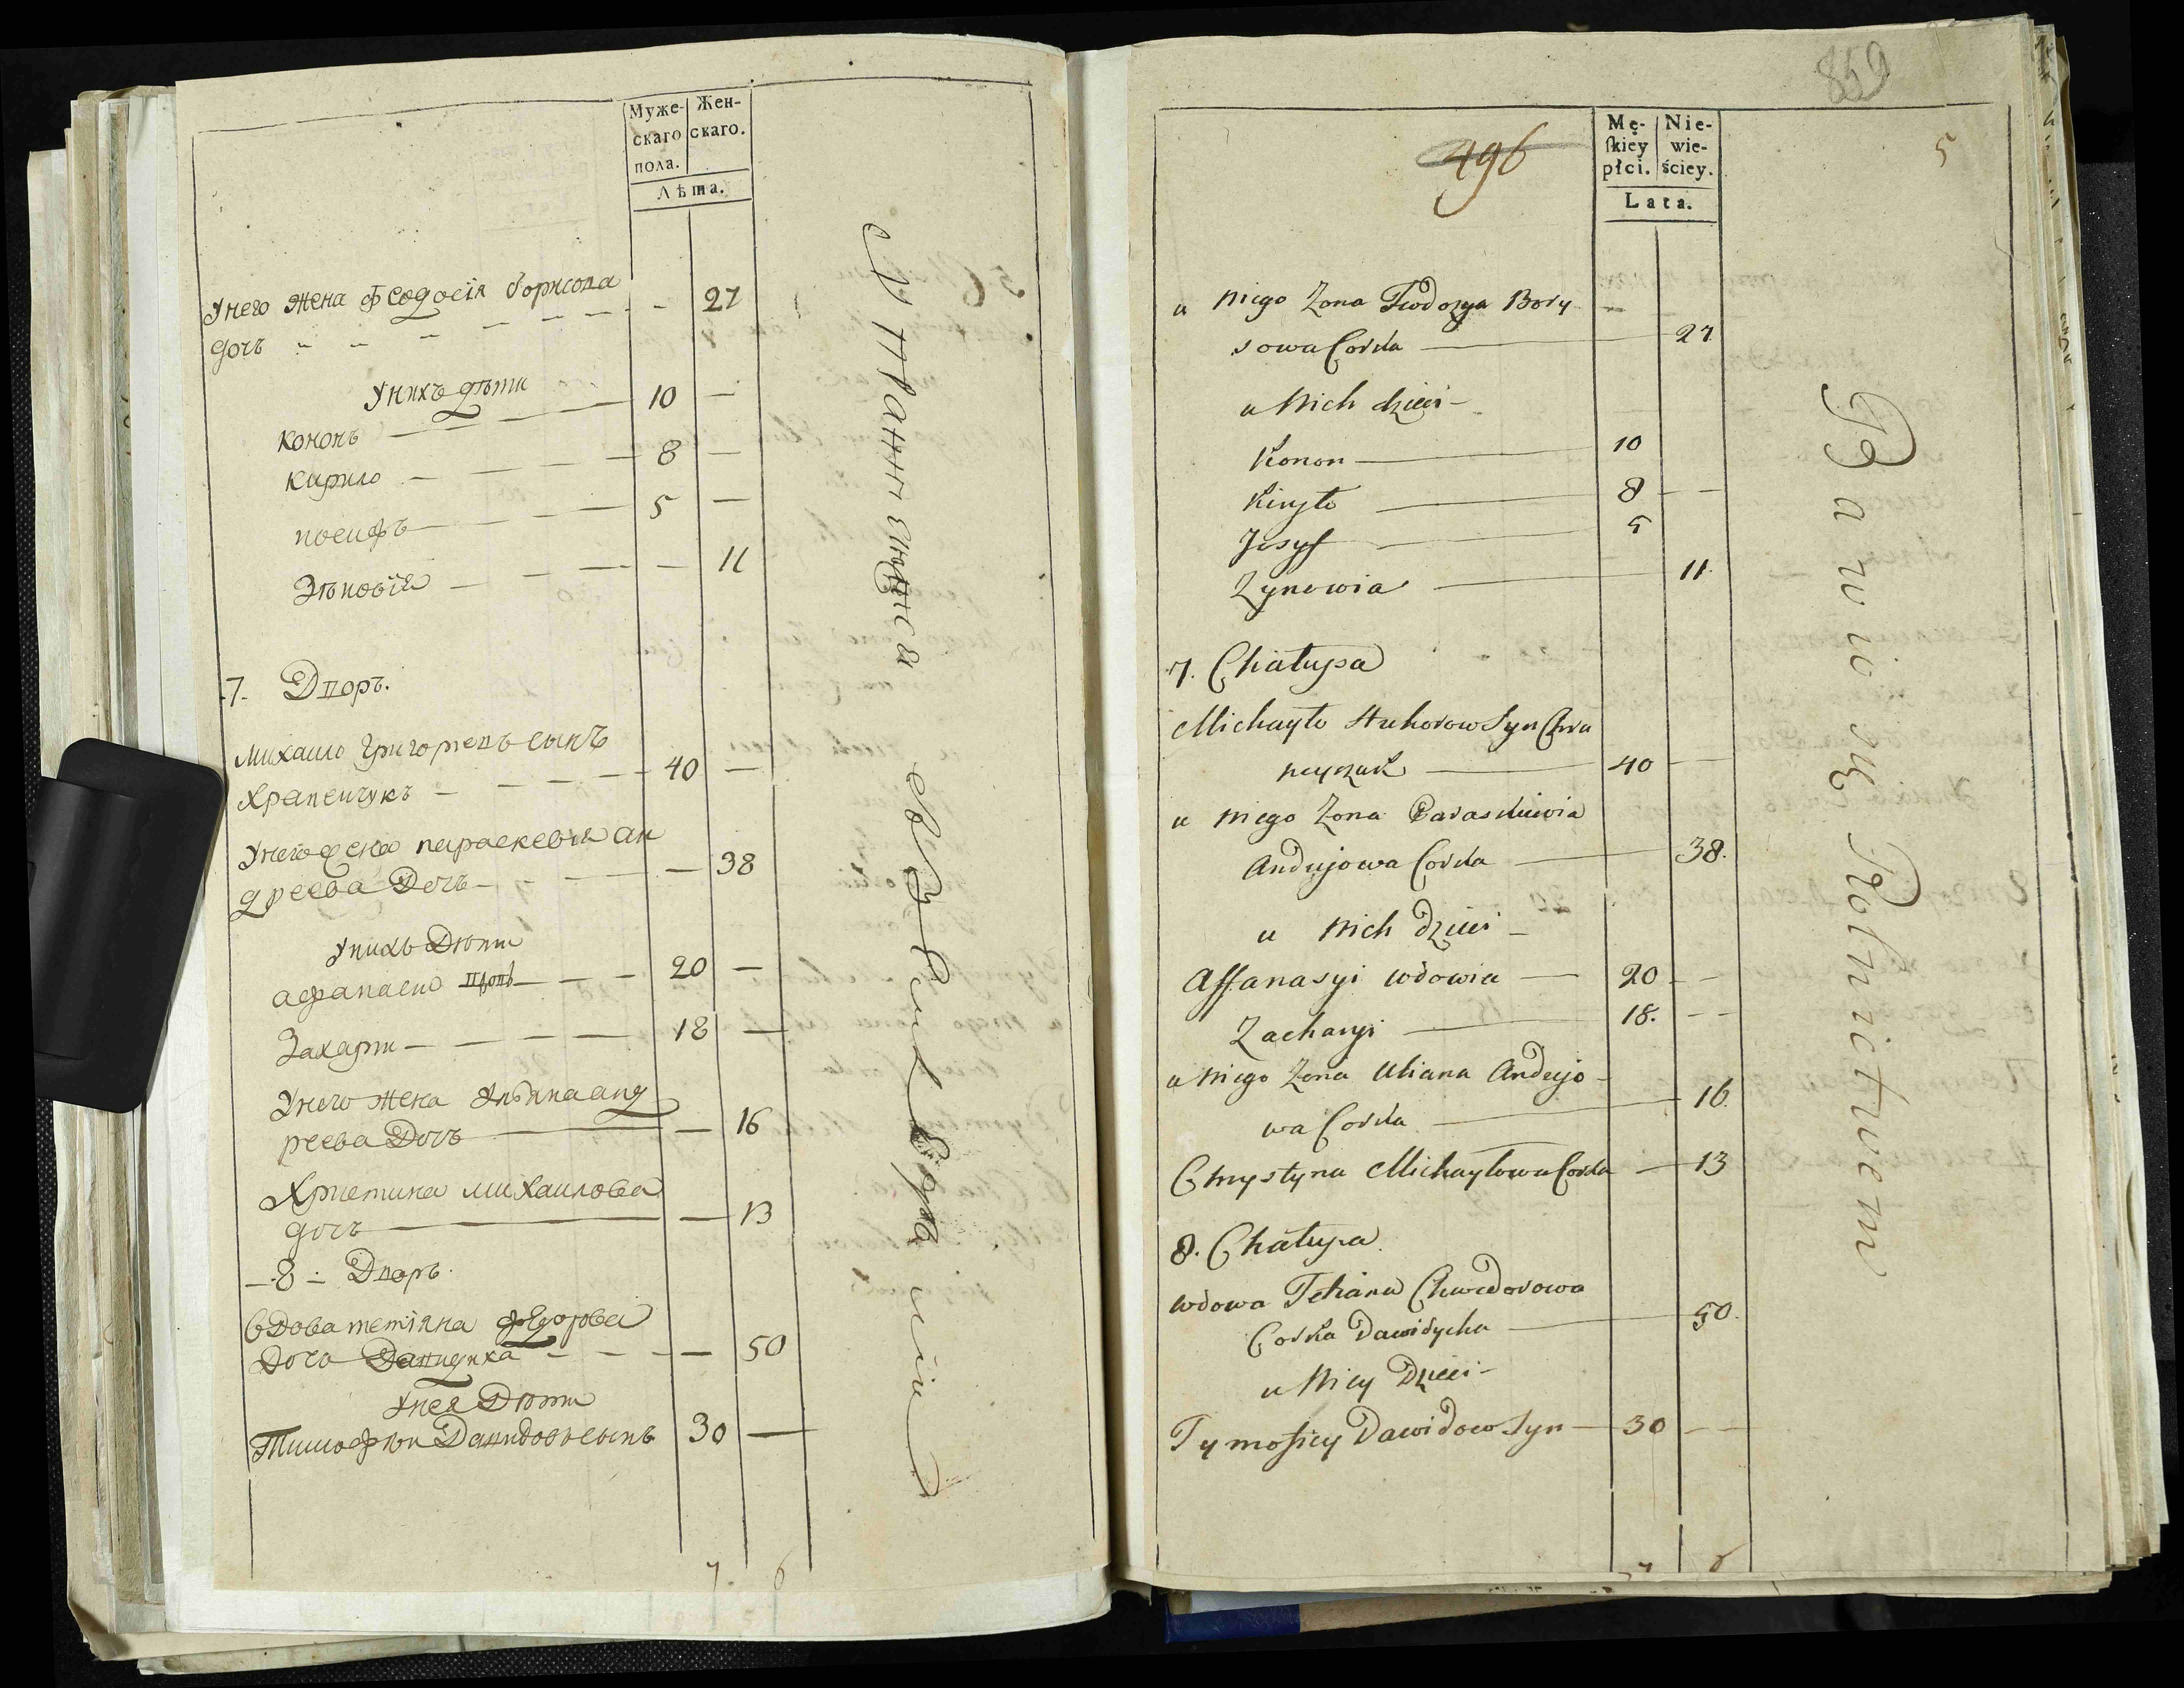 Муже- Жен-
скаго скаго.
пола.
Лѣта.
Унего жена Феодосія борисова
дочъ - - - 27
Унихъ дѣти
кононъ 10 —
кирило 8 —
иосифъ 5 —
Зѣновія — 11
7. Дворъ.
михаило григориевъ сынъ
храпенчукъ — 40 —
Унего жена параскевія ан
дреева Дочъ — 38
Унихъ Дѣти
афанасии вдовъ 20 —
Захарии — 18 —
Унего жена Улѣяна анд
реева Дочъ — 16
Христина михаилова
дочъ — 13
8. Дворъ.
Вдова тетіяна федорова
Дочъ Давидиха — 50
Унея Дѣти
Тимофѣи Давидовъ сынъ 30 —
7. 6
859
496
5
Mę- Nie-
skiey wie-
płci. ściey.
Lata.
u niego Żona Teodozya Bory
sowa Corka — 27
u Nich dzieci
Konon — 10
Kiryło — 8 —
Josyf — 5
Zynowia — 11.
7. Chałupa
Michayło Huhorow Syn Chra
peyczuk — 40 —
u niego Żona Paraskiewia
Andryjowa Corka — 38.
u Nich dzieci
Affanasyi wdowia — 20 —
Zacharyi — 18. —
u Niego Żona Uliana Andryjo-
wa Corka — 16.
Chrystyna Michayłowa Corka — 13
8. Chałupa
wdowa Tetiana Chwedorowa
Corka Dawidycha — 50.
u Niey Dzieci
Tymofiey Dawidow Syn — 30 —
7 6
Rolnictwem